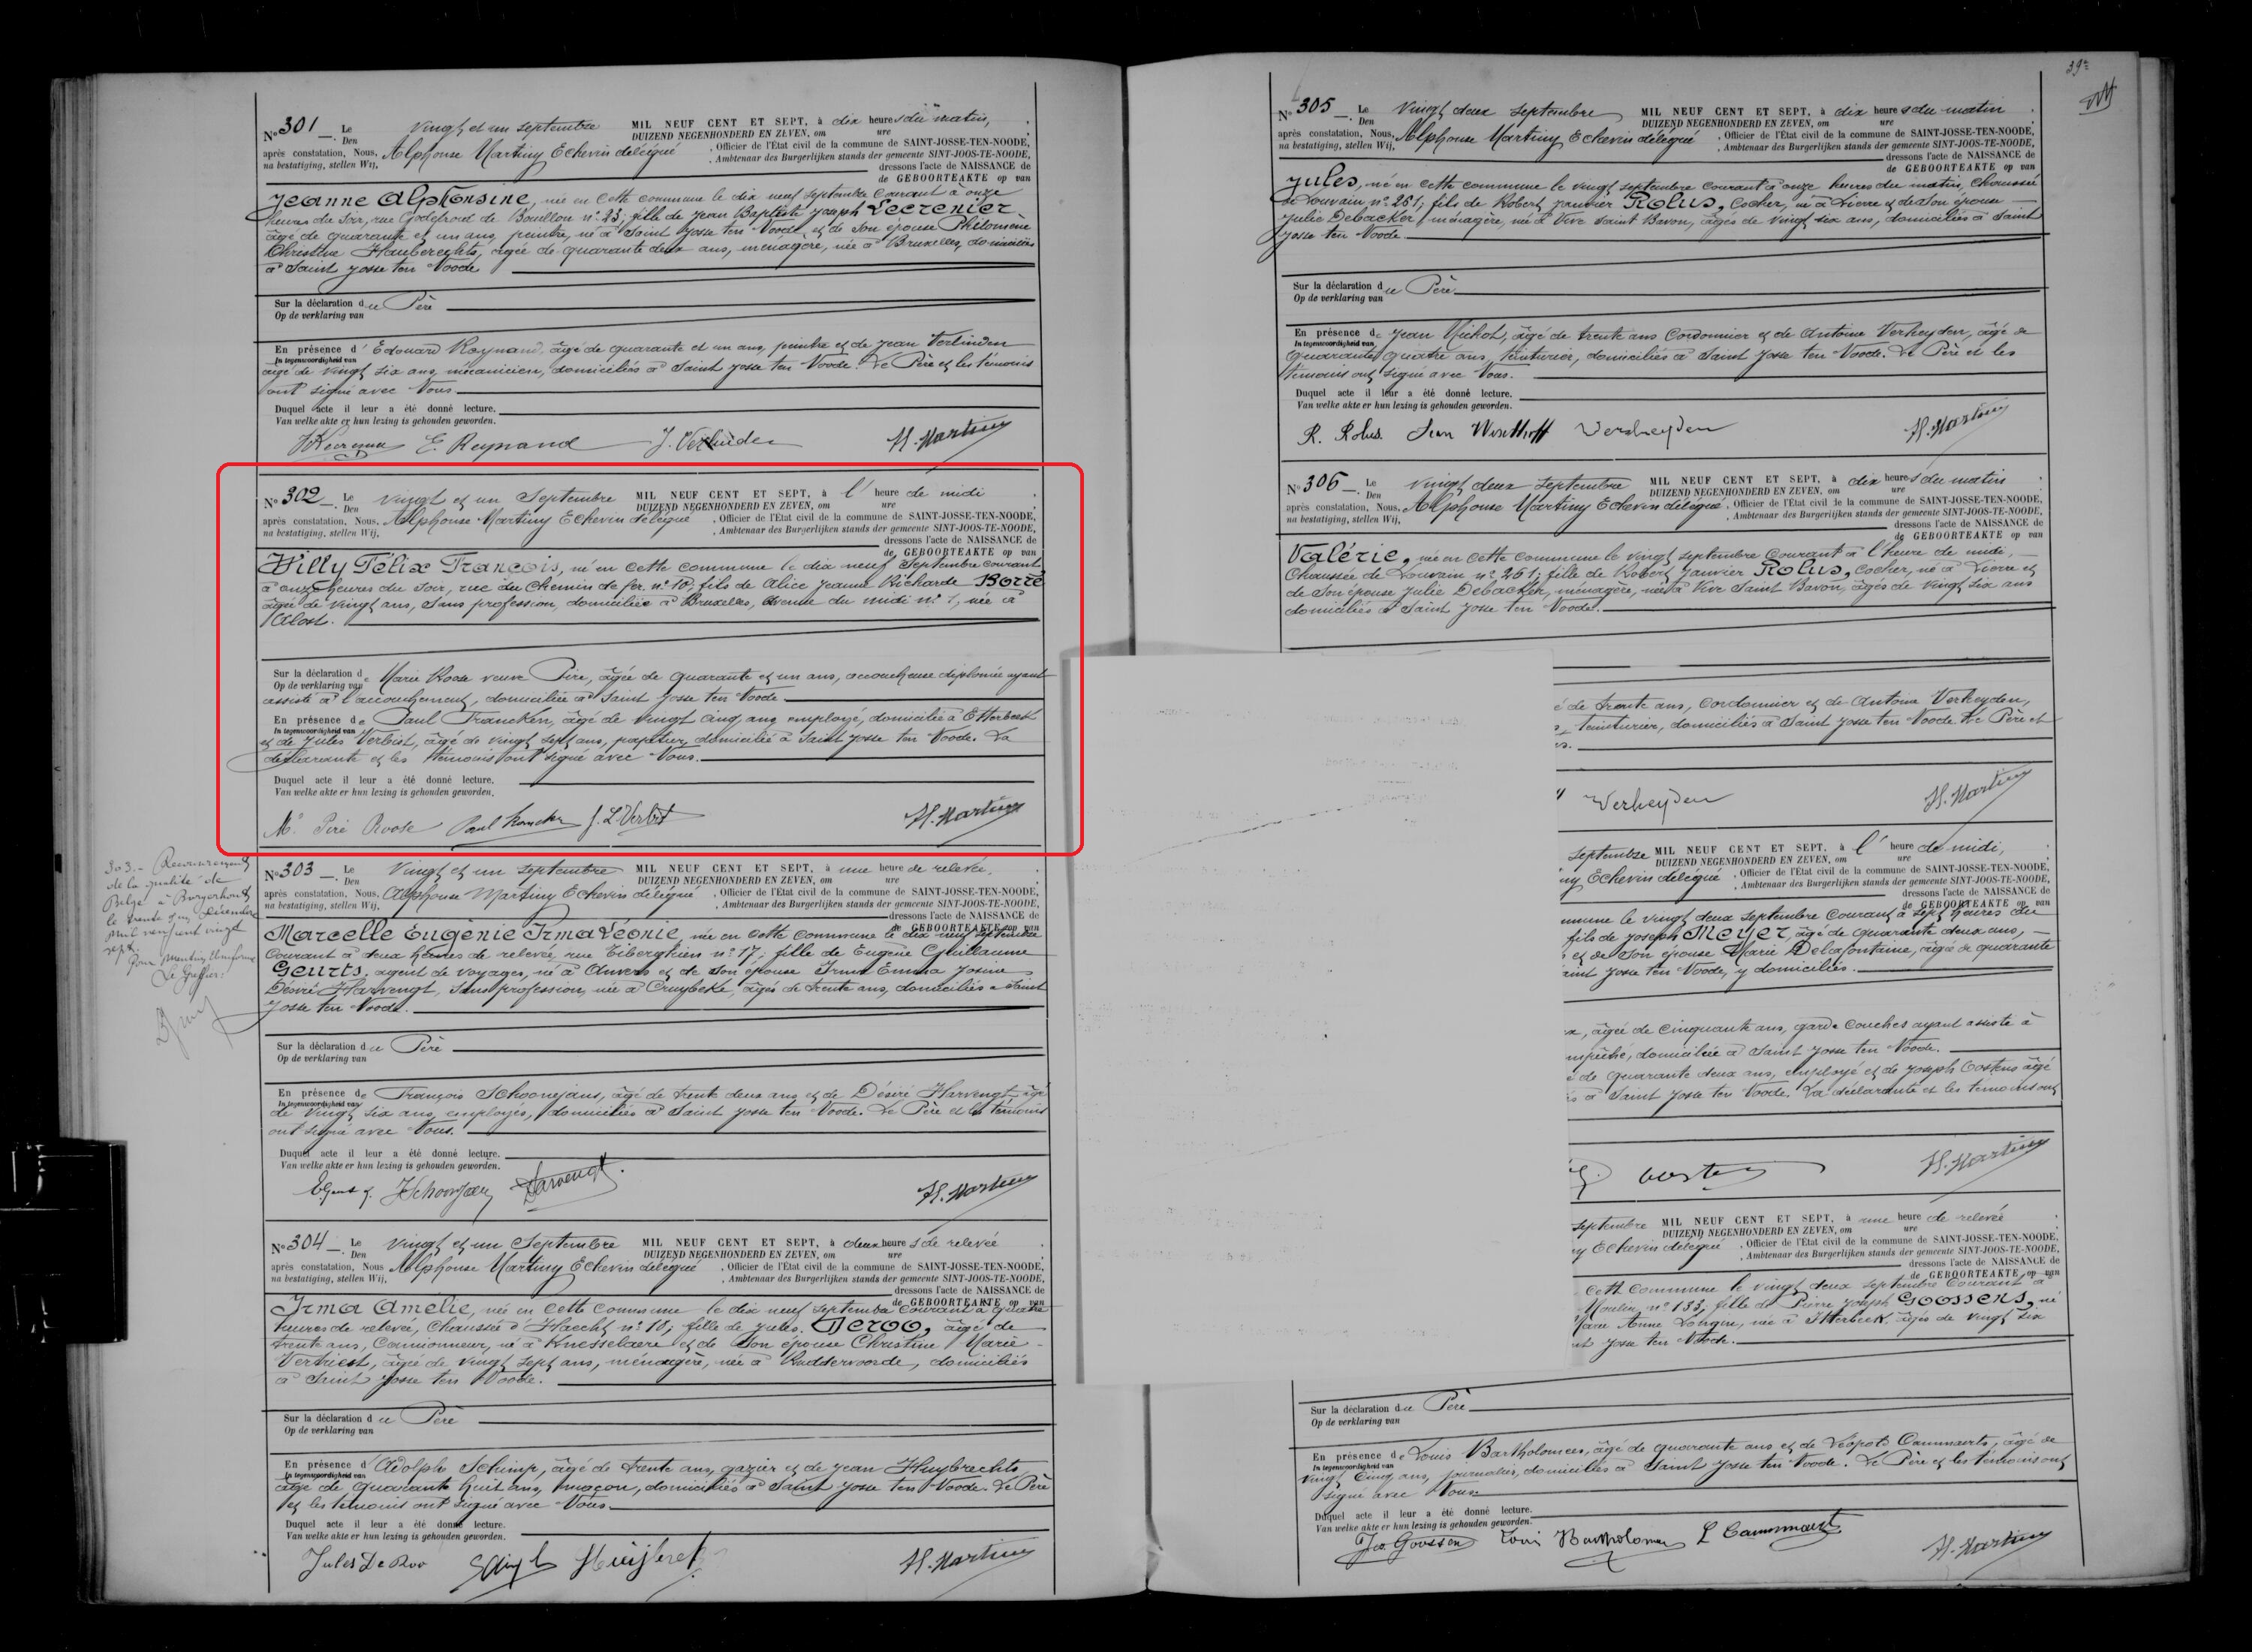 39
N° 301 Le Den vingt et un septembre MIL NEUF CENT ET SEPT, à dix heures du matin,
DUIZEND NEGENHONDERD EN ZEVEN, om ure
après constatation, Nous, Alphonse Martiny Echevin délégué, Officier de l'État civil de la commune de SAINT-JOSSE-TEN-NOODE,
na bestatiging, stellen Wij, , Ambtenaar des Burgerlijken stands der gemeente SINT-JOOS-TE-NOODE,
dressons l'acte de NAISSANCE de
de GEBOORTEAKTE op van
Jeanne Alphonsine, née en cette commune le dix neuf septembre courant à onze
heures du soir, rue Godefroid de Bouillon n° 23; fille de Jean Baptiste Joseph Lecrenier
âgé de quarante et un ans, peintre, né à Saint Josse ten Noode et de son épouse Philomène
Christine Haubrechts, âgée de quarante deux ans, ménagère, née à Bruxelles, domiciliés
à Saint Josse ten Noode
Sur la déclaration du Père
Op de verklaring van
En présence d' Edouard Reynand, âgé de quarante et un ans, peintre et de Jean Verlinden
In tegenwoordigheid van
âgé de vingt six ans, mécanicien, domiciliés à Saint Josse ten Noode. Le Père et les témoins
ont signé avec Nous
Duquel acte il leur a été donné lecture.
Van welke akte er hun lezing is gehouden geworden.
E. Reynand J. Verlinden A. Martiny
N° 302 Le Den vingt et un Septembre MIL NEUF CENT ET SEPT, à l' heure de midi
DUIZEND NEGENHONDERD EN ZEVEN, om ure
après constatation, Nous, Alphonse Martiny Echevin délégué, Officier de l'État civil de la commune de SAINT-JOSSE-TEN-NOODE,
na bestatiging, stellen Wij, , Ambtenaar des Burgerlijken stands der gemeente SINT-JOOS-TE-NOODE,
dressons l'acte de NAISSANCE de
de GEBOORTEAKTE op van
Willy Félix François, né en cette commune le dix neuf Septembre courant
à onze heures du soir, rue du Chemin de fer n° 10; fils de Alice Jeanne Richarde Borré
âgée de vingt ans, sans profession, domiciliée à Bruxelles, avenue du midi n° 1, née à
Alost.
Sur la déclaration de Marie Roose veuve Piré, âgée de quarante et un ans, accoucheuse diplomée ayant
Op de verklaring van
assisté à l'accouchement, domiciliée à Saint Josse ten Noode
En présence de Paul Francken, âgé de vingt cinq ans, employé, domicilié à Etterbeek
In tegenwoordigheid van
et de Jules Verbist, âgé de vingt sept ans, papetier, domicilié à Saint Josse ten Noode. La
déclarante et les témoins ont signé avec Nous.
Duquel acte il leur a été donné lecture.
Van welke akte er hun lezing is gehouden geworden.
Piré Roose Paul Francken J. L. Verbist A. Martiny
303. Recouvrement
de la qualité de
Belge à Borgerhout
le trente un Décembre
mil neuf cent vingt
sept.
Pour mention conforme
Le Greffier
N° 303 Le Den vingt et un septembre MIL NEUF CENT ET SEPT, à une heure de relevée,
DUIZEND NEGENHONDERD EN ZEVEN, om ure
après constatation, Nous, Alphonse Martiny Echevin délégué, Officier de l'État civil de la commune de SAINT-JOSSE-TEN-NOODE,
na bestatiging, stellen Wij, , Ambtenaar des Burgerlijken stands der gemeente SINT-JOOS-TE-NOODE,
dressons l'acte de NAISSANCE de
de GEBOORTEAKTE op van
Marcelle Eugénie Irma Léonie, née en cette commune le dix neuf septembre
courant à deux heures de relevée, rue Tiberghien n° 17; fille de Eugène Guillaume
Geurts, agent de voyages, né à Anvers et de son épouse Irma Emma Josine
Désiré Harvengt, sans profession, née à Cruybeke, âgés de trente ans, domiciliés à Saint
Josse ten Noode.
Sur la déclaration du Père
Op de verklaring van
En présence de François Schoonejans, âgé de trente deux ans et de Désiré Harvengt, âgé
In tegenwoordigheid van
de vingt six ans, employés, domiciliés à Saint Josse ten Noode. Le Père et les témoins
ont signé avec Nous.
Duquel acte il leur a été donné lecture.
Van welke akte er hun lezing is gehouden geworden.
Harvengt A. Martiny
N° 304 Le Den vingt et un Septembre MIL NEUF CENT ET SEPT, à deux heures de relevée
DUIZEND NEGENHONDERD EN ZEVEN, om ure
après constatation, Nous Alphonse Martiny Echevin délégué, Officier de l'État civil de la commune de SAINT-JOSSE-TEN-NOODE,
na bestatiging, stellen Wij, , Ambtenaar des Burgerlijken stands der gemeente SINT-JOOS-TE-NOODE,
dressons l'acte de NAISSANCE de
de GEBOORTEAKTE op van
Irma Amélie, née en cette commune le dix neuf septembre courant à quatre
heures de relevée, Chaussée d'Haecht n° 10; fille de Jules Deroo, âgé de
trente ans, camionneur, né à Knesselaere et de son épouse Christine Marie
Verhiest, âgée de vingt sept ans, ménagère, née à Ruddervoorde, domiciliés
à Saint Josse ten Noode.
Sur la déclaration du Père
Op de verklaring van
En présence d' Adolphe Schimp, âgé de trente ans, gazier et de Jean Huybrechts,
In tegenwoordigheid van
âgé de quarante huit ans, maçon, domiciliés à Saint Josse ten Noode. Le Père
et les témoins ont signé avec Nous.
Duquel acte il leur a été donné lecture.
Van welke akte er hun lezing is gehouden geworden.
Jules De Roo A. Martiny
N° 305 Le Den vingt deux septembre MIL NEUF CENT ET SEPT, à dix heures du matin
DUIZEND NEGENHONDERD EN ZEVEN, om ure
après constatation, Nous, Alphonse Martiny Echevin délégué, Officier de l'État civil de la commune de SAINT-JOSSE-TEN-NOODE,
na bestatiging, stellen Wij, , Ambtenaar des Burgerlijken stands der gemeente SINT-JOOS-TE-NOODE,
dressons l'acte de NAISSANCE de
de GEBOORTEAKTE op van
Jules, né en cette commune le vingt septembre courant à onze heures du matin, chaussée
de Louvain n° 261; fils de Robert Janvier Rolus, cocher, né à Lierre et de son épouse
Julie Debacker, ménagère, née à Vive Saint Bavon, âgés de vingt six ans, domiciliés à Saint
Josse ten Noode
Sur la déclaration du Père
Op de verklaring van
En présence de Jean âgé de trente ans Cordonnier et de Antoine Verheyden, âgé de
In tegenwoordigheid van
quarante quatre ans, teinturier, domiciliés à Saint Josse ten Noode. Le Père et les
témoins ont signé avec Nous.
Duquel acte il leur a été donné lecture.
Van welke akte er hun lezing is gehouden geworden.
R. Rolus. Verheyden A. Martiny
N° 306 Le Den vingt deux septembre MIL NEUF CENT ET SEPT, à dix heures du matin
DUIZEND NEGENHONDERD EN ZEVEN, om ure
après constatation, Nous, Alphonse Martiny Echevin délégué, Officier de l'État civil de la commune de SAINT-JOSSE-TEN-NOODE,
na bestatiging, stellen Wij, , Ambtenaar des Burgerlijken stands der gemeente SINT-JOOS-TE-NOODE,
dressons l'acte de NAISSANCE de
de GEBOORTEAKTE op van
Valérie, née en cette commune le vingt septembre courant à l'heure de midi,
Chaussée de Louvain n° 261; fille de Robert Janvier Rolus, cocher, né à Lierre et
de son épouse Julie Debacker, ménagère, née à Vive Saint Bavon, âgés de vingt six ans
domiciliés à Saint Josse ten Noode.
de trente ans, cordonnier et de Antoine Verheyden,
teinturier, domiciliés à Saint Josse ten Noode. Le Père et
Verheyden A. Martiny
septembre MIL NEUF CENT ET SEPT, à l' heure de midi,
DUIZEND NEGENHONDERD EN ZEVEN, om ure
ny Echevin délégué, Officier de l'État civil de la commune de SAINT-JOSSE-TEN-NOODE,
, Ambtenaar des Burgerlijken stands der gemeente SINT-JOOS-TE-NOODE,
dressons l'acte de NAISSANCE de
de GEBOORTEAKTE op van
mmune le vingt deux septembre courant à sept heures du
fils de Joseph Meyer, âgé de quarante deux ans,
et de son épouse Marie Delafontaine, âgée de quarante
aint Josse ten Noode, y domiciliés.
âgée de cinquante ans, garde couches ayant assisté à
mpêché, domiciliée à Saint Josse ten Noode.
é de quarante deux ans, employé et de Joseph Oostens âgé
à Saint Josse ten Noode. La déclarante et les témoins ont
A. Martiny
septembre MIL NEUF CENT ET SEPT, à une heure de relevée
DUIZEND NEGENHONDERD EN ZEVEN, om ure
ny Echevin délégué, Officier de l'État civil de la commune de SAINT-JOSSE-TEN-NOODE,
, Ambtenaar des Burgerlijken stands der gemeente SINT-JOOS-TE-NOODE,
dressons l'acte de NAISSANCE de
de GEBOORTEAKTE op van
cette commune le vingt deux septembre courant à
Moulin, n° 133, fille de Pierre Joseph Goossens, né
Anne née à Itterbeek, âgés de vingt six
nt Josse ten Noode.
Sur la déclaration du Père
Op de verklaring van
En présence de Louis Bartholomees, âgé de quarante ans et de Léopold Cammaerts, âgé de
In tegenwoordigheid van
vingt cinq ans, journaliers, domiciliés à Saint Josse ten Noode. Le Père et les témoins ont
signé avec Nous.
Duquel acte il leur a été donné lecture.
Van welke akte er hun lezing is gehouden geworden.
Jos Goossens Louis Bartholomees L Cammaerts A. Martiny